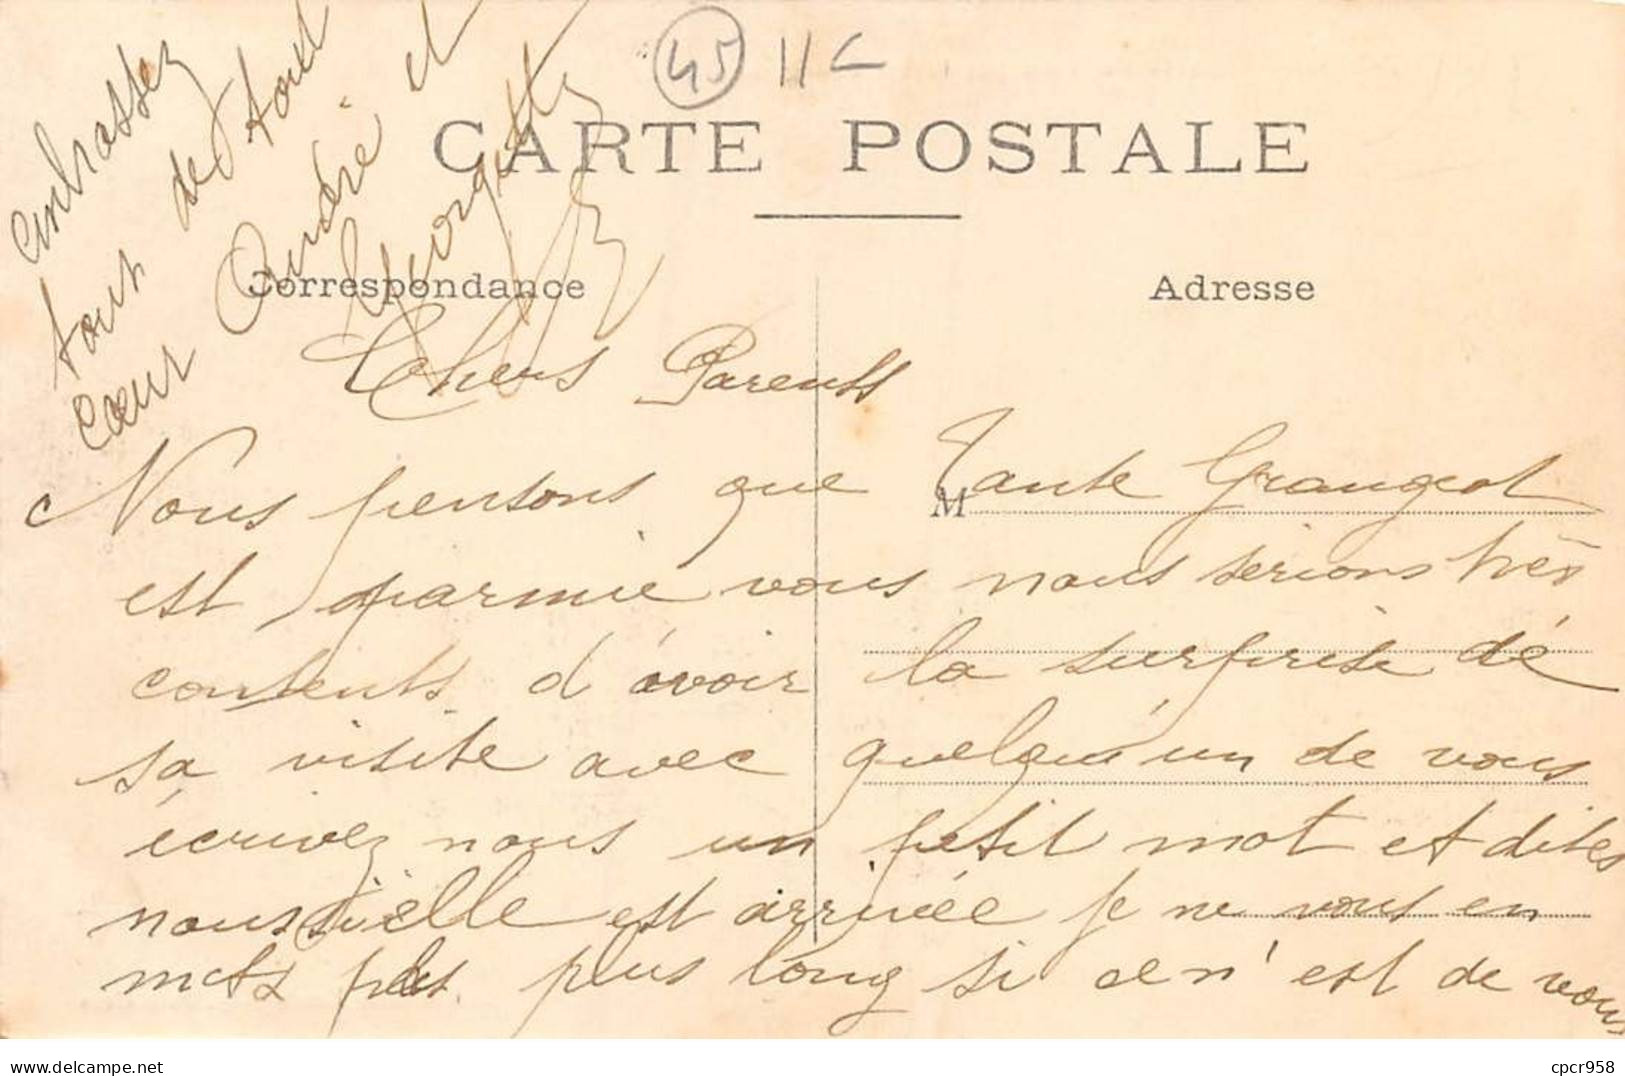 45 11C
CARTE POSTALE
Correspondance
Adresse
Chers Parents
Nous pensons que Tante Grangeot
M
est parmie vous nous serions très
contents d'avoir la surprise dé
sa visite avec quelqu'un de vous
écrivez nous un petit mot et dites
nous si elle est arrivée je ne vous en
mets pas plus long si ce n'est de vous
embrasser
tous de tout
cœur André et
Georgette
Delcampe.net
cpcr958